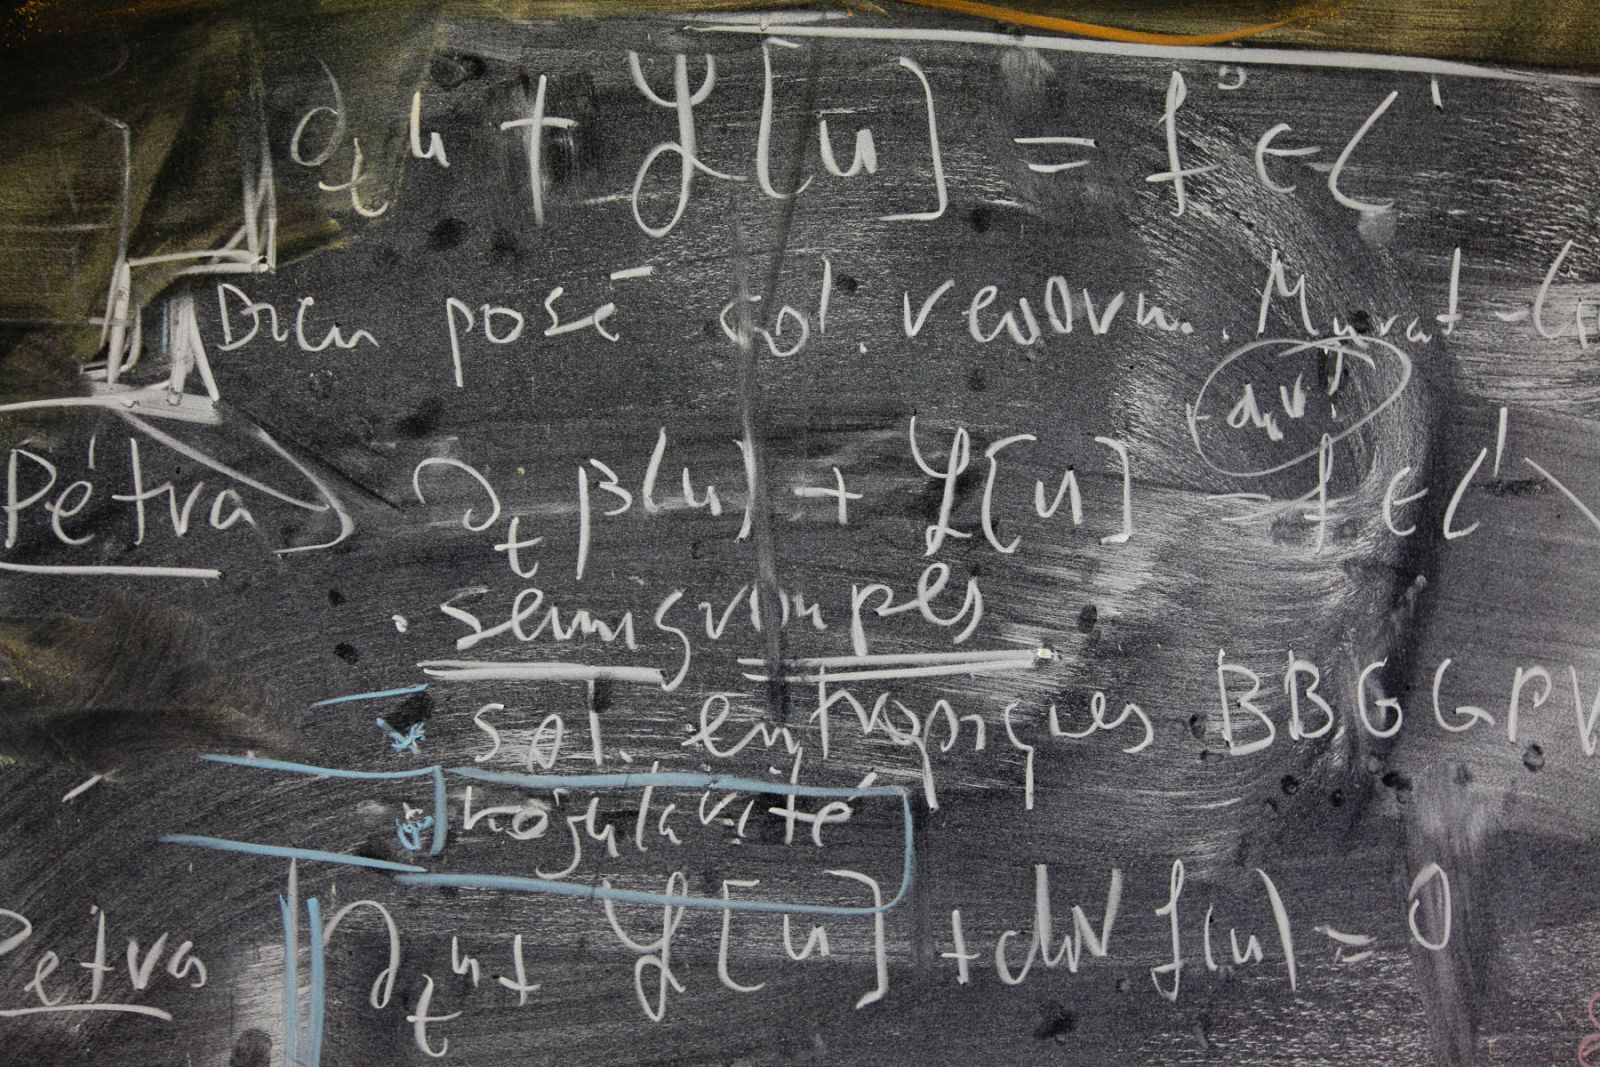 ∂ₜu + ℒ[u] = f ∈ L¹
Bien posé sol. renorm. Murat-
div
Pétra ∂ₜβ(u) + ℒ[u] = f ∈ L¹
. semigroupes
sol. entropiques BBGGPV
régularité
Pétra ∂ₜu + ℒ[u] + div f(u) = 0